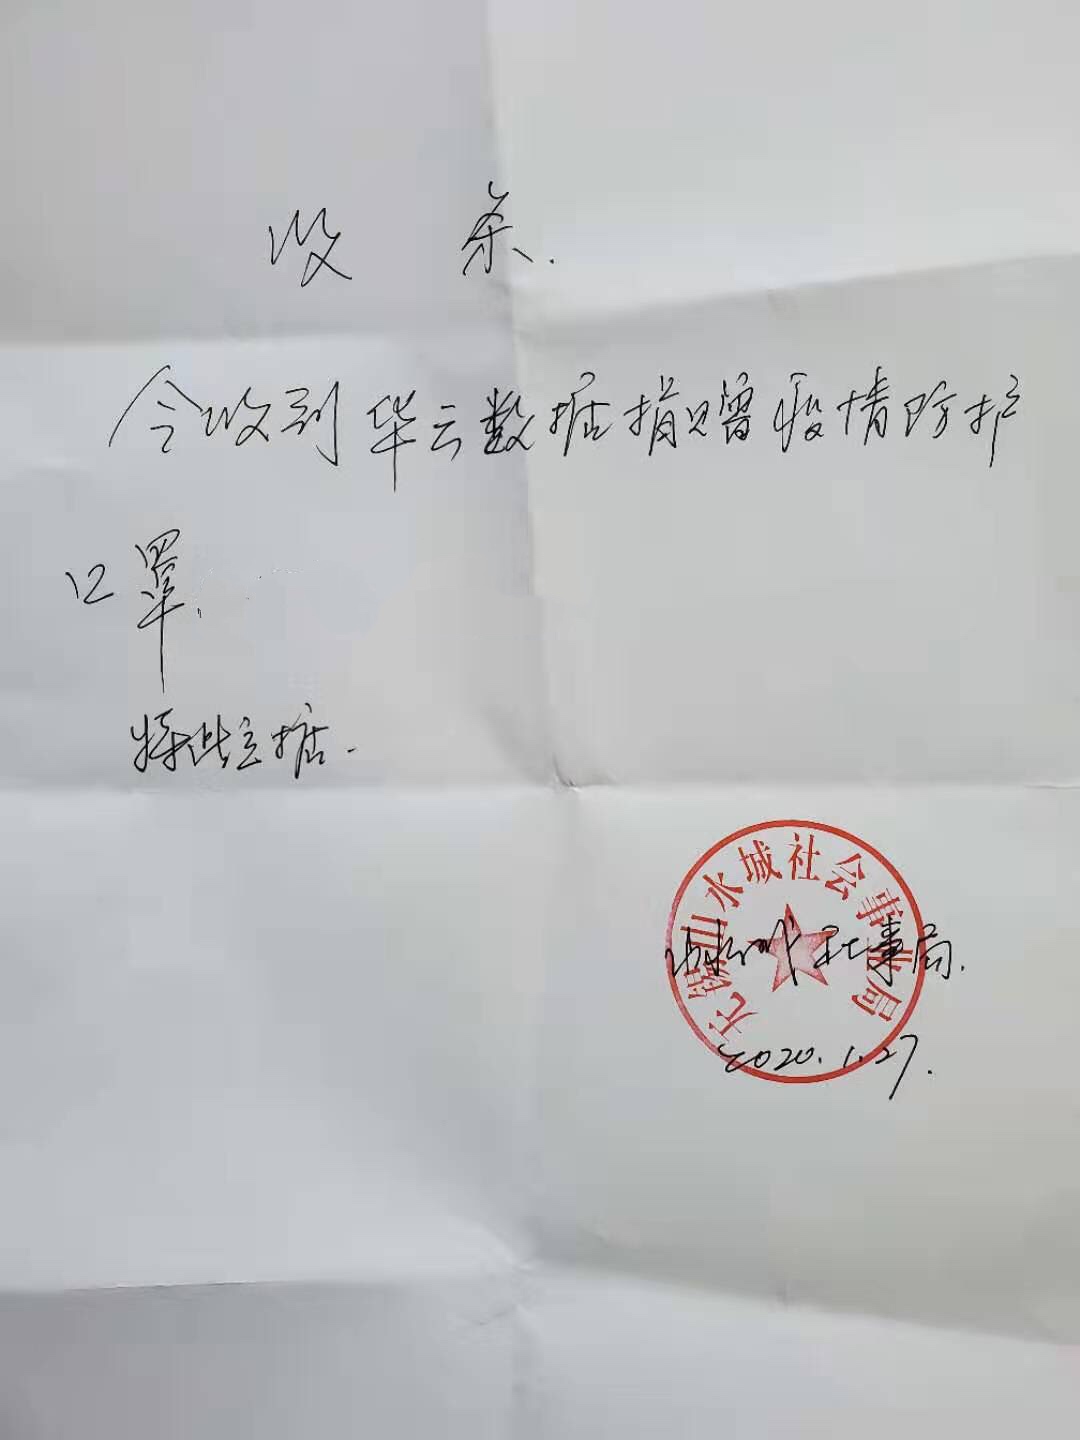 收 条.
今收到华云数据捐赠疫情防护
口罩.
特此立据.
无锡山水城社会事业局
山水城社事局.
2020.1.27.